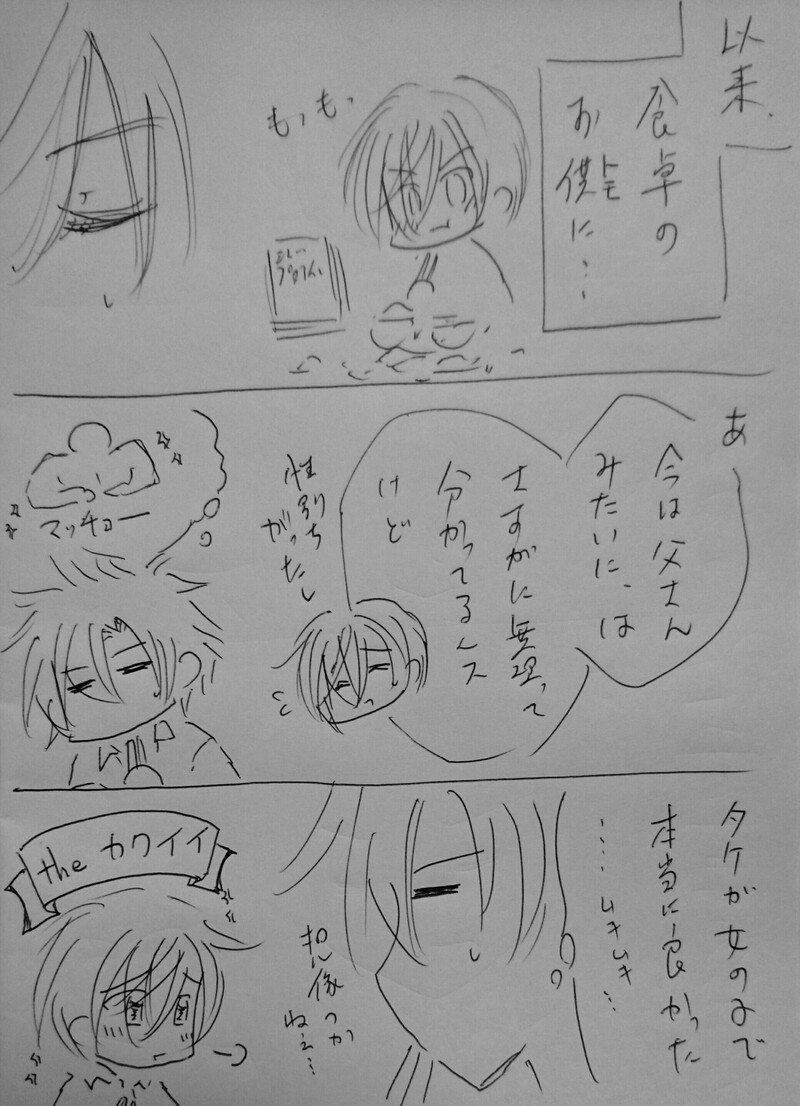 以来、
食卓の
お供に…
トモ
もっもっ
プロテイン
あ
今は父さん
みたいに、は
さすがに無理って
分かってるんス
けど
性別ち
がったし
マッチョー
タケが女の子で
本当に良かった
……ムキムキ…
想像つか
ねぇ…
the カワイイ